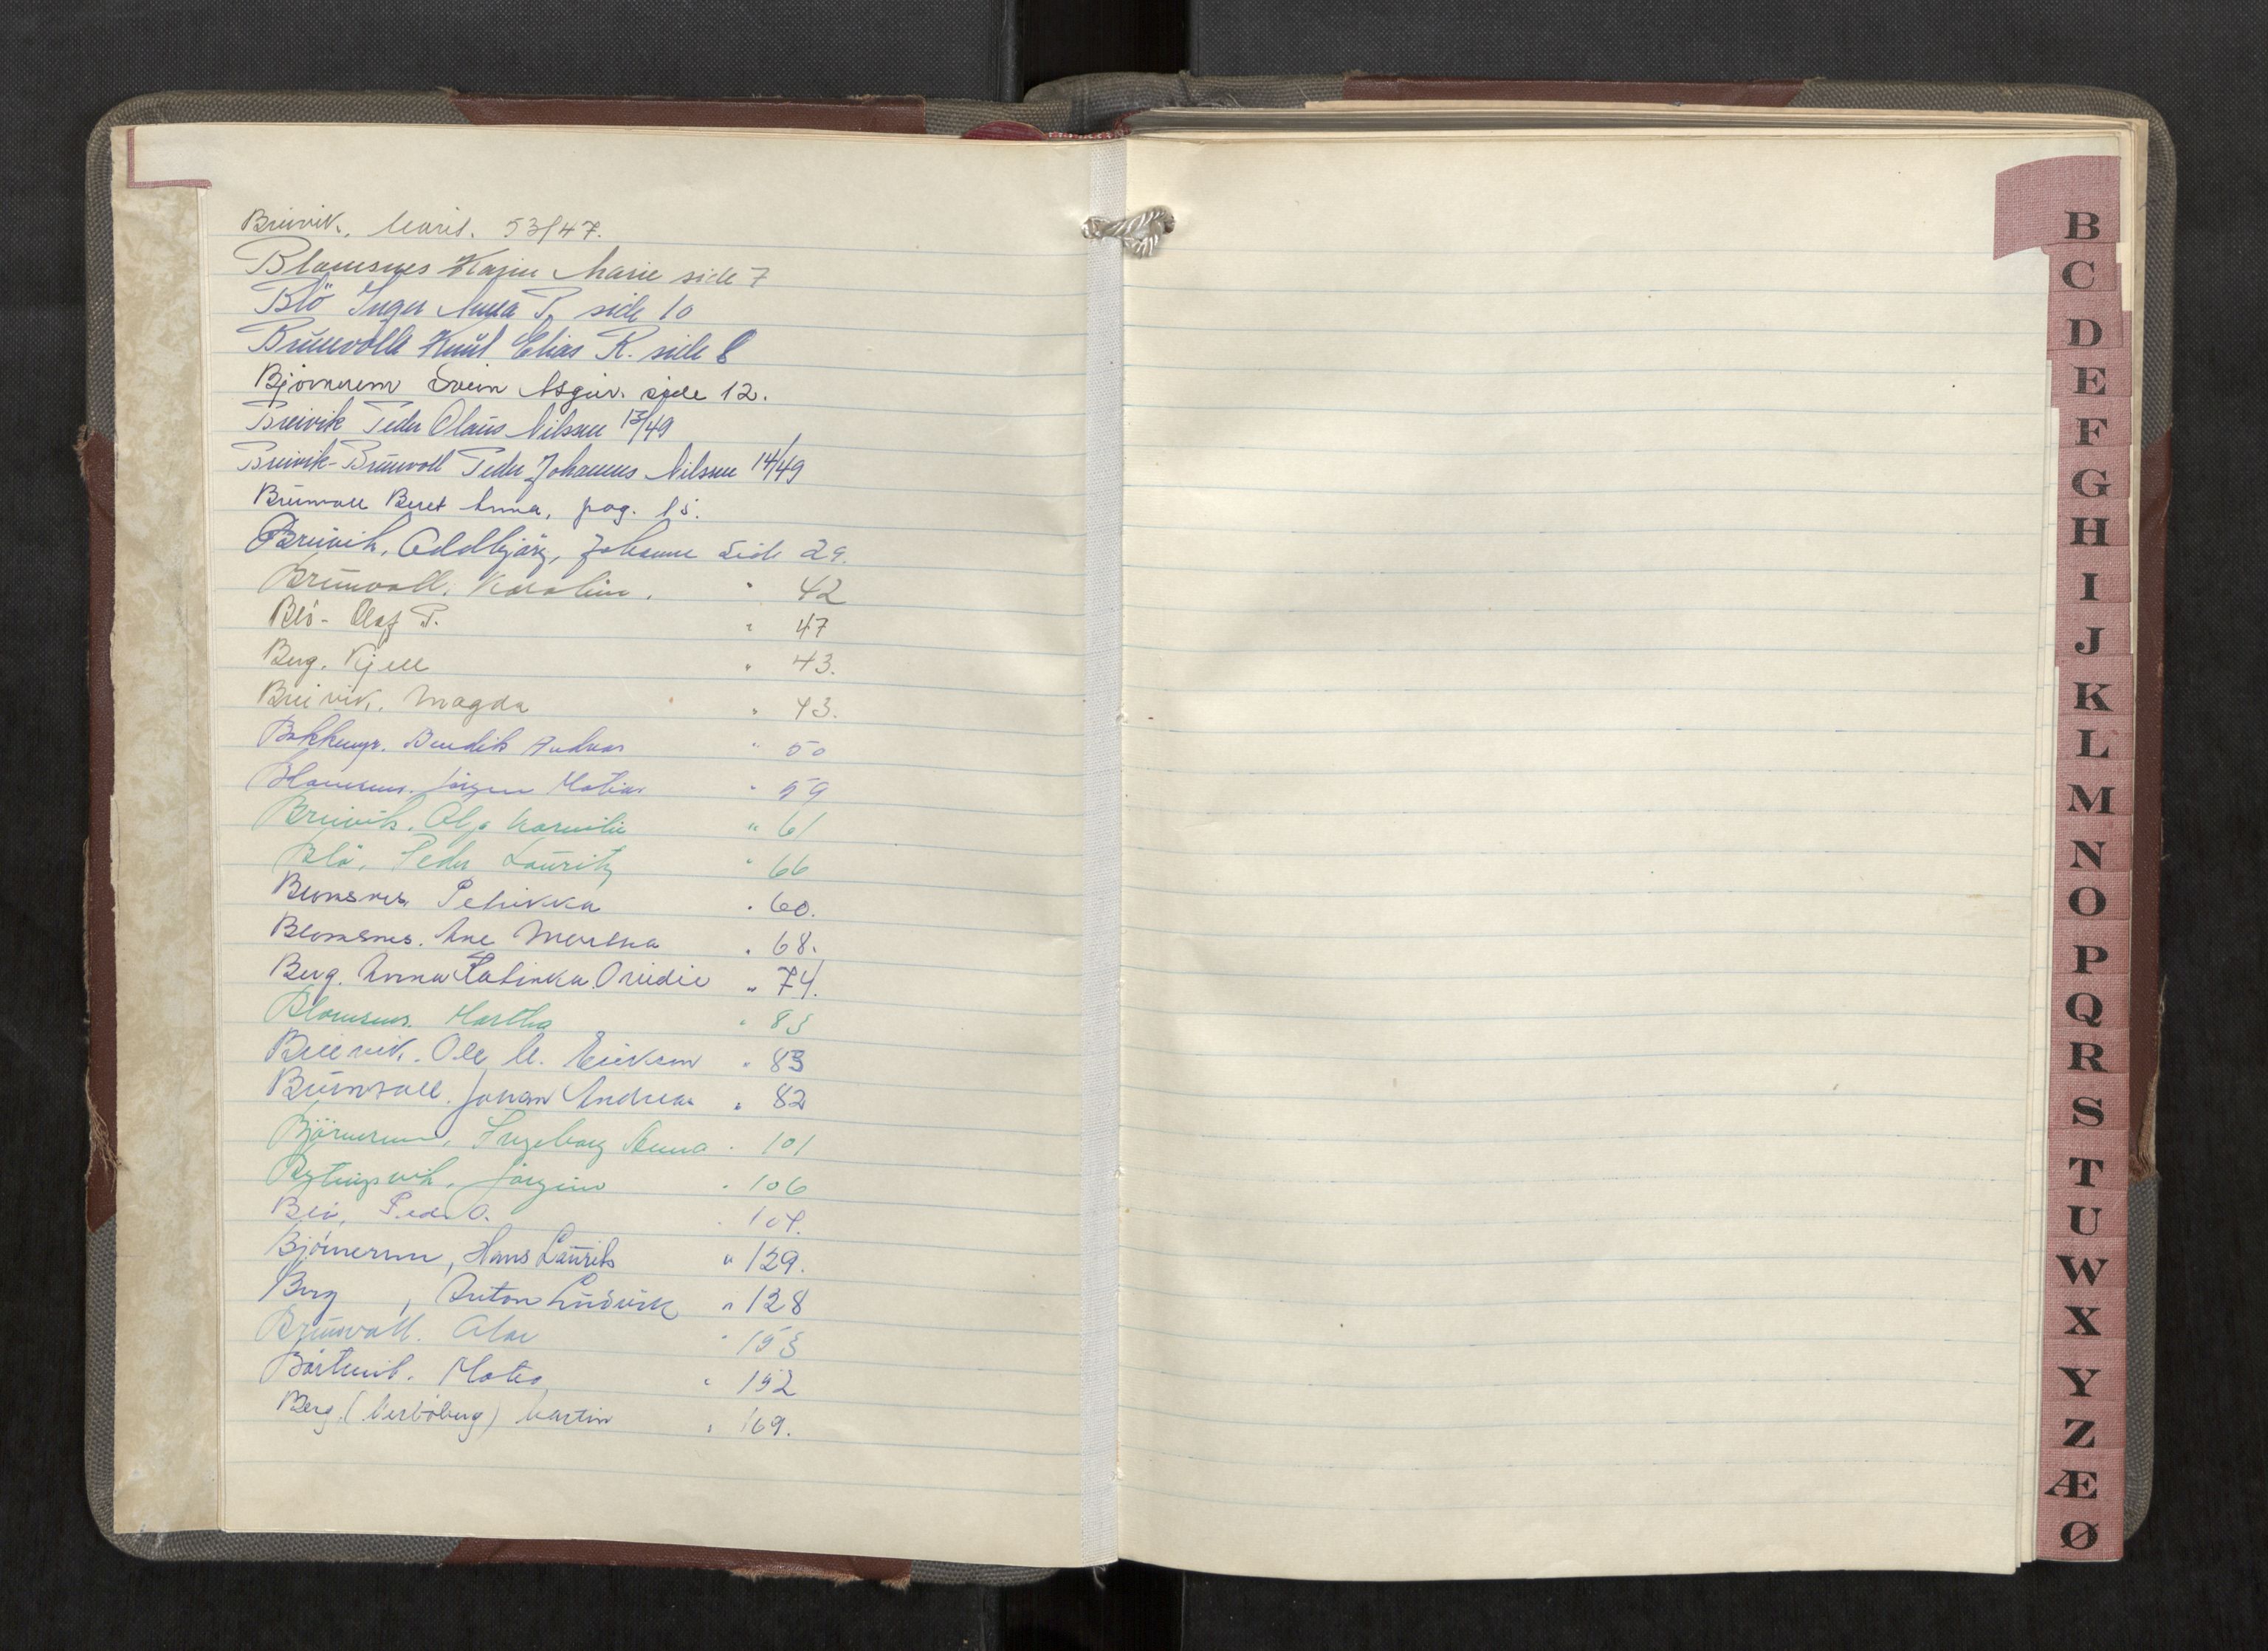 Breivik, Marit. 53/47.
Blomsnes Karin Marie side 7
Blö Inger Anna P. side 10
Brunvoll Knut Elias K. side 8
Bjørnerem Svein Asgeir. side 12.
Breivik Peder Olaus Nilssen 13/49
Breivik-Brunvoll Peder Johannes Nilssen 14/49
Brunvoll Beret Anna, pag. 15.
Breivik, Oddbjørg, Johanne Side 29.
Brunvoll, Karoline. " 42
Blö- Olaf P. " 47
Berg. Kjell " 43.
Breivik. Magda " 43.
Bakkemyr. Bendik Andreas " 50
Blomsnes. Jørgen Matias " 59
Breivik. Olga " 61
Blö, Peder Lauritz " 66
Blomsnes Petrikka " 60.
Blomsnes. Ane Martha " 68.
Berg. Anna Katinka Ovidie " 74.
Blomsnes. Martha " 83
Breivik. Ole M. Eriksen " 83
Brunvoll. Johan Andreas " 82
Bjørnerem, Ingeborg Anna " 101
Jørgine " 106
Blö, Peder O. " 104.
Bjørnerem, Hans Laurits " 129.
Berg, Anton Ludvik " 128
Brunvoll. " 153
" 152
Berg. (Verböberg) Martin " 169.
B
C
D
E
F
G
H
I
J
K
L
M
N
O
P
Q
R
S
T
U
W
X
Y
Z
Æ
Ø